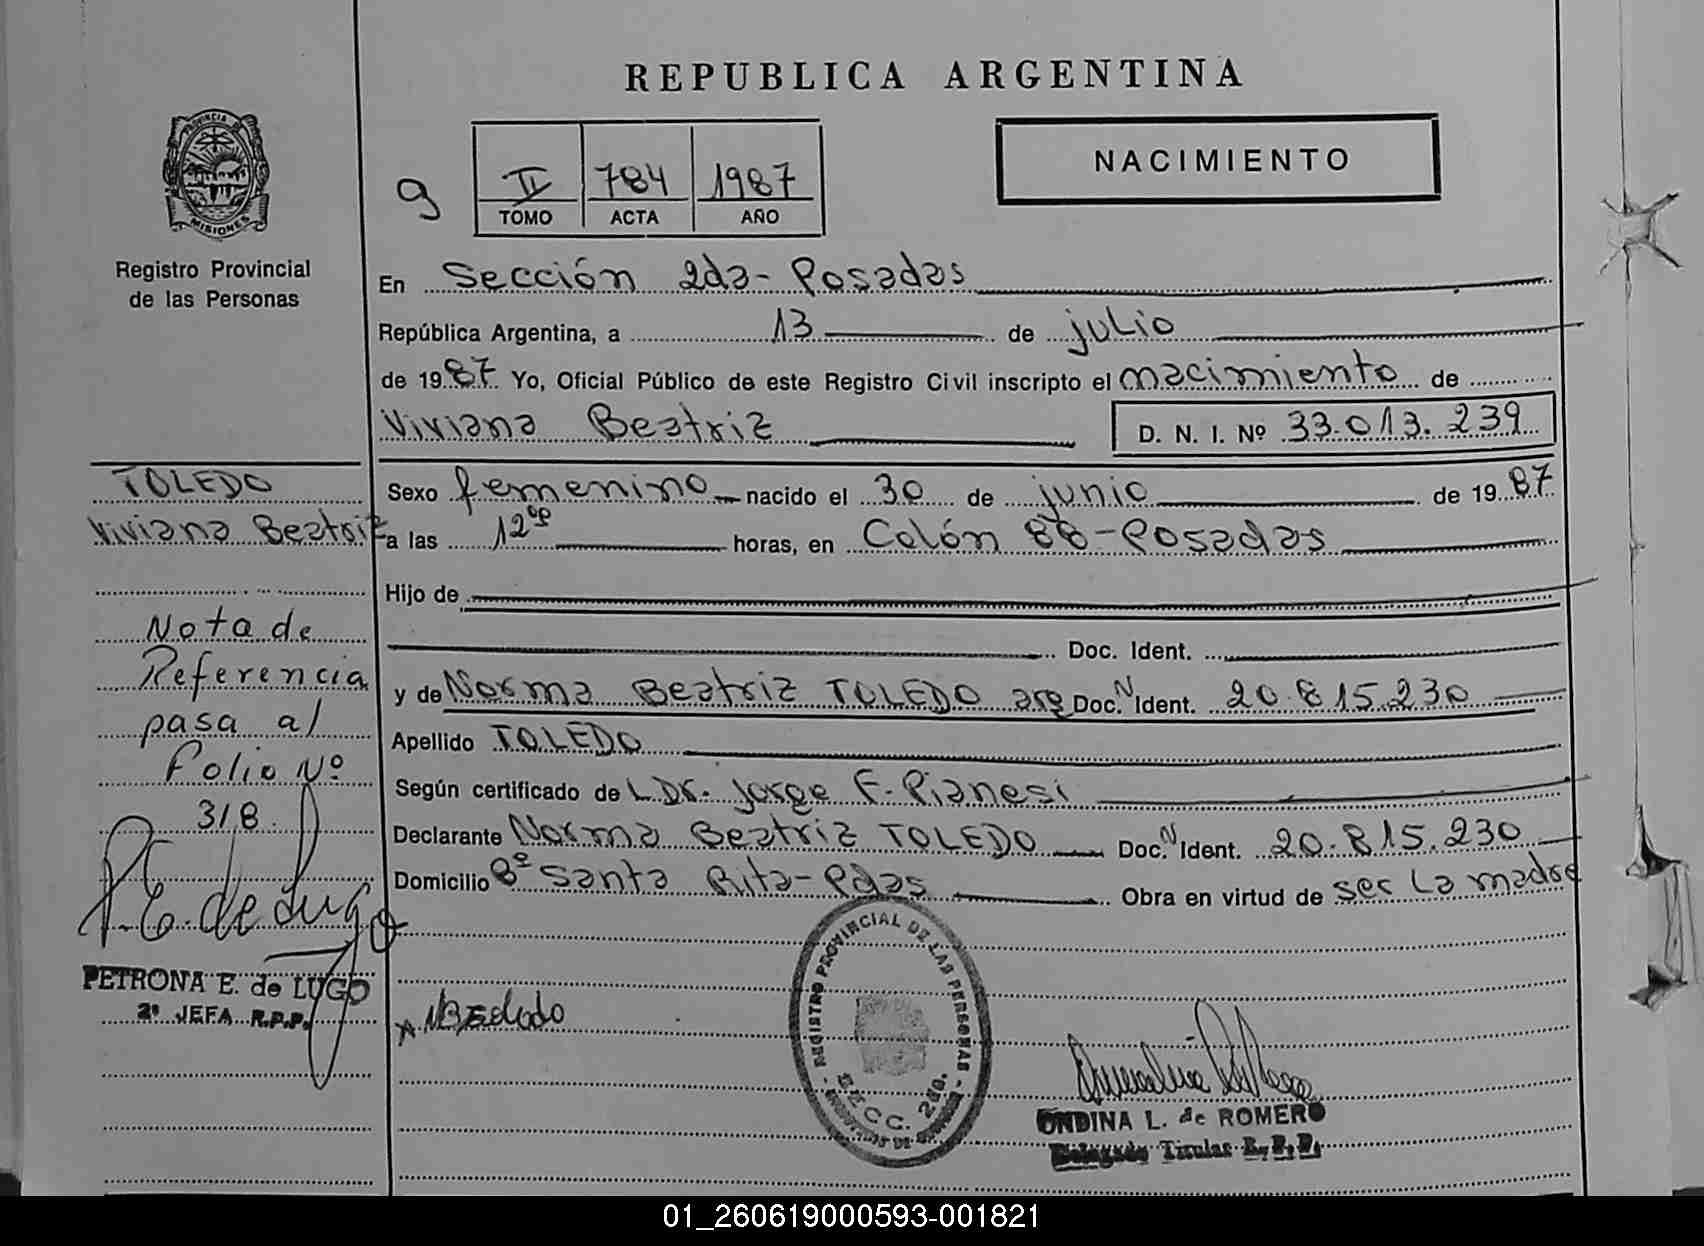 REPUBLICA ARGENTINA
PROVINCIA DE
MISIONES
Registro Provincial
de las Personas
9
II 784 1987
TOMO ACTA AÑO
NACIMIENTO
En Sección 2da- Posadas
República Argentina, a 13 de julio
de 1987 Yo, Oficial Público de este Registro Civil inscripto el nacimiento de
Viviana Beatriz
D. N. I. Nº 33.013.239
Sexo femenino nacido el 30 de junio de 1987
a las 12 horas, en Colón 88-Posadas
Hijo de
Doc. Ident.
y de Norma Beatriz TOLEDO arg Doc. N Ident. 20.815.230
Apellido TOLEDO
Según certificado de L Dr. Jorge F. Pianesi
Declarante Norma Beatriz TOLEDO Doc. N Ident. 20.815.230
Domicilio Bº Santa Rita-Pdas Obra en virtud de ser la madre
TOLEDO
Viviana Beatriz
Nota de
Referencia
pasa al
Folio Nº
318
P.E. de Lugo
PETRONA E. de LUGO
2º JEFA R.P.P.
NBToledo
REGISTRO PROVINCIAL DE LAS PERSONAS
SECC. 2da.
ONDINA L. de ROMERO
Delegado Titular R.P.P.
01_260619000593-001821